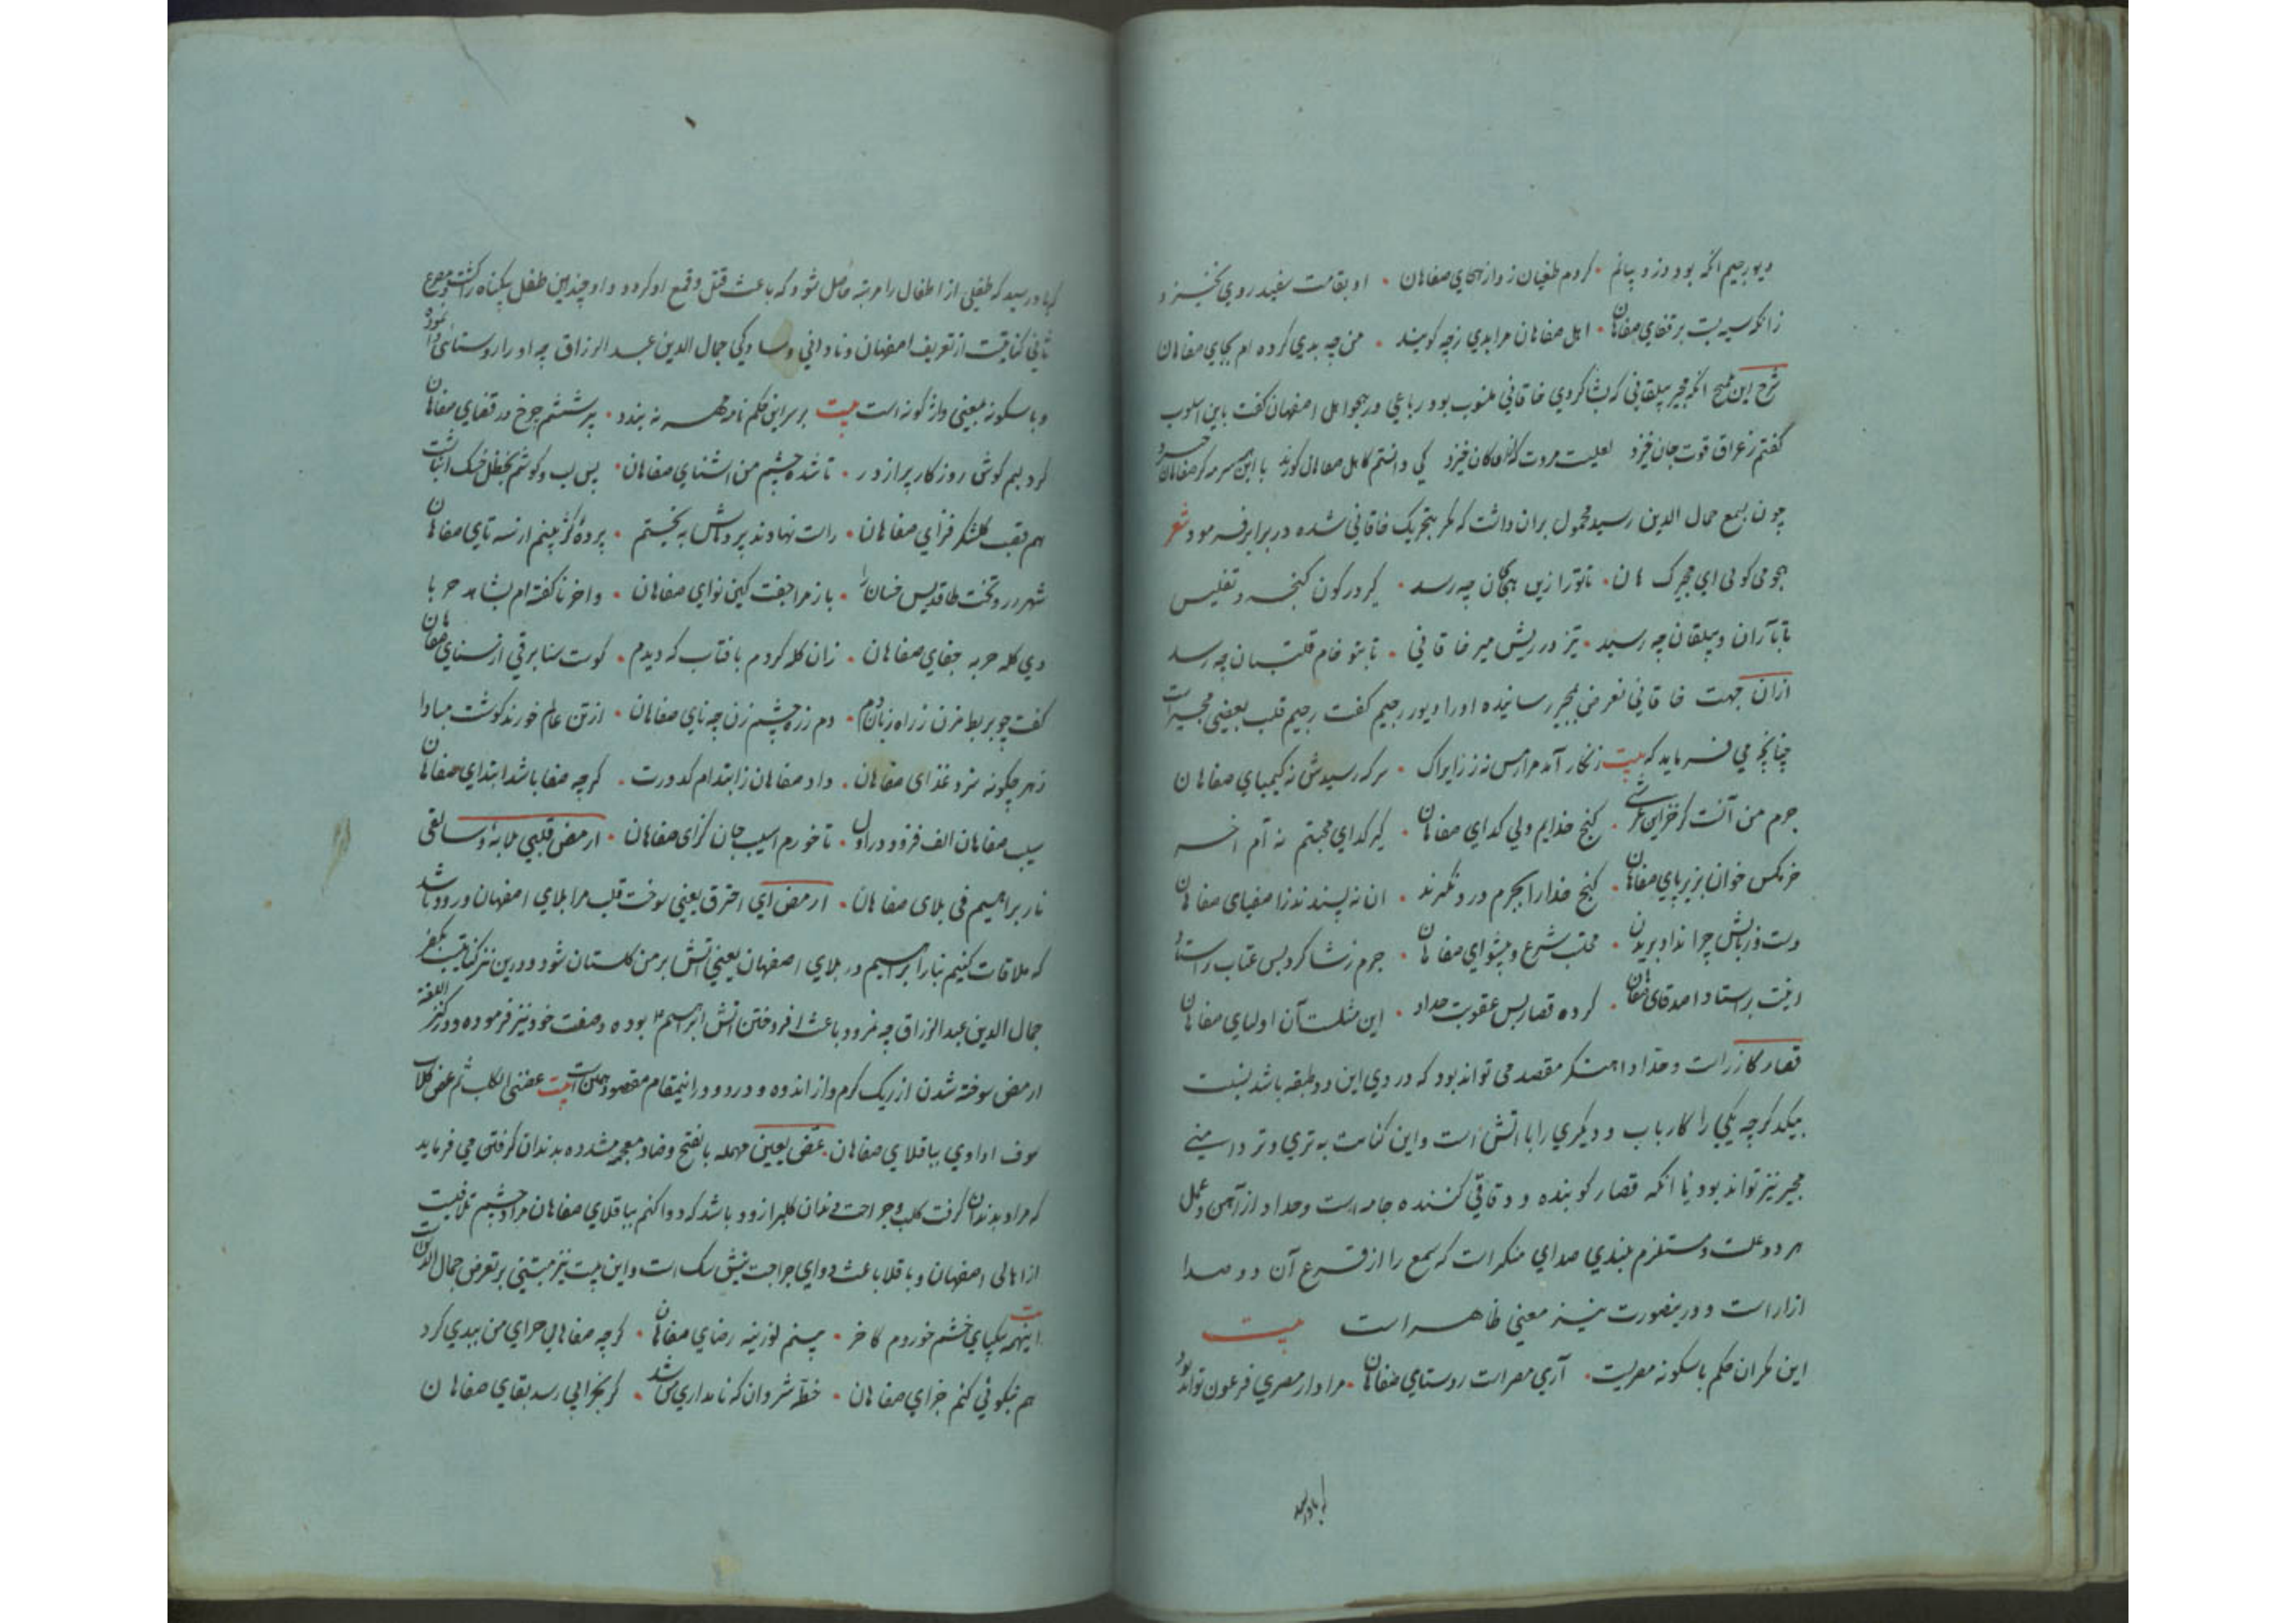 دیو رجیم انکه بود دزد بیانم • کردم طغیان زد از هجای صفاهان • او بقامت سفید روی نخیزد
زانکه سیه بست بر قفای صفاهان • اهل صفاهان مرا بدی زچه کویند • من چه بدی کرده ام بجای صفاهان
شرح این تلمیح انکه مجیر بیلقانی که بشاکردی خاقانی منسوب بود رباعی در هجو اهل اصفهان کفت باین اسلوب
کفتم ز عراق قوت جان خیزد لعلیست مروت که از ان کان خیزد کی دانستم کاهل صفاهان کورند با این همه سرمه کز صفاهان خیزد
چون بسمع جمال الدین رسید محمول بران داشت که مکر بتحریک خاقانی شده در برابر فرمود شعر
هجو می کویی ای مجیرک هان • تا ترا زین هجکان چه رسد • کیر در کون کنجه و تفلیس
تا بآران و بیلقان چه رسد • تیز در ریش میر خاقانی • تا بتو خام قلتبان چه رسد
ازان جهت خاقانی تعرض بمجیر رسانیده اورا دیو رجیم کفت رجیم قلب بعضی مجیر است
چنانچه می فرماید که بیت زنکار آمد مرا مس نه زر ایراک • هرکه رسیدش نه کیمیای صفاهان
جرم من آنست کز خزاین عرشی • کنج خدایم ولی کدای صفاهان • کیر کدای محبتم نه آم اخر
خرمکس خوان ریزپای صفاهان • کنج خدا را بجرم دزد نکیرند • ان نه پسندند ز اصفیای صفاهان
دست و زبانش چرا نداد بریدن • محتسب شرع و پیشوای صفاهان • جرم ز شاکرد پس عتاب بر استاد
اینت بر استاد اصدقای صفاهان • کرده قصار پس عقوبت حداد • این مثلست آن اولیای صفاهان
قصار کازر است و حداد اهنکر مقصد می تواند بود که در دی این دو طبقه باشد نسبت
بیکدکر چه یکی را کار باب و دیکری را با اتش است و این کنایت به تری و تر دامنی
مجیر نیز تواند بود یا انکه قصار کوبنده و دقاقی کننده جامه است و حداد از آهن و عمل
هر دو علت و مستلزم بلندی صدای منکر است که سمع را از قرع آن دو صدا
ازار است و درینصورت نیز معنی ظاهر است بیت
این مکر ان حکم باسکونه مصریست • آری مصر است روستای صفاهان • مرا دار مصری فرعون تواند بود
کر باور سید
کر باور سید که طفلی از اطفال را مرتبه حاصل شود که باعث قتل و قمع او کردد و او چندین طفل بیکناه را کشت و مصرع
ثانی کنایتست از تعریف اصفهان و نادانی و سادکی جمال الدین عبد الرزاق چه او را روستائی وا نمود
و باسکونه بمعنی واژکونه است بیت بر سر این حکم نامه مهر نه بندد • پر ششتم چرخ در قفای صفاهان
کردیم کوش روزکار پر از در • تا شده چشم من اشنای صفاهان • پس لب و کوشم بحنظل و خسک انباشت
هم بقصب کلشکر فزای صفاهان • راست نهادند پردهاش به بختم • پرده کژ بینم از سه تای صفاهان
شهره رد و تخت طاقدیس خسان را • باز مرا جفت کین نوای صفاهان • واخر ناکفته ام بشاهد حربا
دی کله حربه جفای صفاهان • زان کله کردم بافتاب که دیدم • کوست سنا برقی از سنای صفاهان
کفت چو بربط مزن ز راه زبان دم • دم ز ره چشم زن چه نای صفاهان • از تن عالم خورند کوشت مبادا
زهر چکونه سزد غذای صفاهان • داد صفاهان ز ابتدام کدورت • کرچه صفا باشد ابتدای صفاهان
سیب صفاهان الف فزود در اول • تا خورم اسیب جان کزای صفاهان • ارمض قلبی بلابه و سالقی
نار براهیم فی بلای صفاهان • ارمض ای احترق یعنی سوخت قلب مرا بلای اصفهان و زود باشد
که ملاقات کنیم نار ابراهیم در بلای اصفهان یعنی اتش بر من کلستان شود و درین نیز کنایتیست بکفر
جمال الدین عبد الرزاق چه نمرود باعث افروختن اتش ابراهیم ۴ بوده و صفت خود نیز فرموده و در کنز اللغة
ارمض سوخته شدن از ریک کرم و از اندوه و درد و در اینمقام مقصود همین است بیت عضنی الکلب ثم عض کلاب
سوف اداوی بباقلای صفاهان • عض بعین مهمله بالفتح و ضاد معجمه مشدده بدندان کرفتن می فرماید
که مرا بدندان کرفت کلب و جراحت دندان کلب را زود باشد که دوا کنم بباقلای صفاهان مراد چشم تلافیست
از اهالی اصفهان و باقلا باعث دوای جراحت نیش سک است و این بیت نیز مبتنی بر تعرض جمال الدین است
بیت اینهمه سکبای خشم خوردم کاخر • بینم لوزینه رضای صفاهان • کرچه صفاهان جزای من ببدی کرد
هم به نیکوئی کنم جزای صفاهان • خطه شروان که نامدار بمن شد • کر بخرابی رسد بقای صفاهان